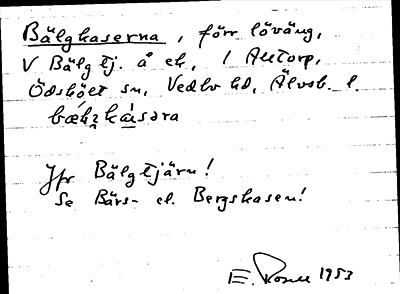 Bälgkaserna, förr löväng,
V Bälgtj. å ek, / Autorp,
Ödskölt sn, Vedbo hd, Älvsb. l.
Jfr Bälgtjärn!
Se Bärs- el. Bergskasen!
E. 1953